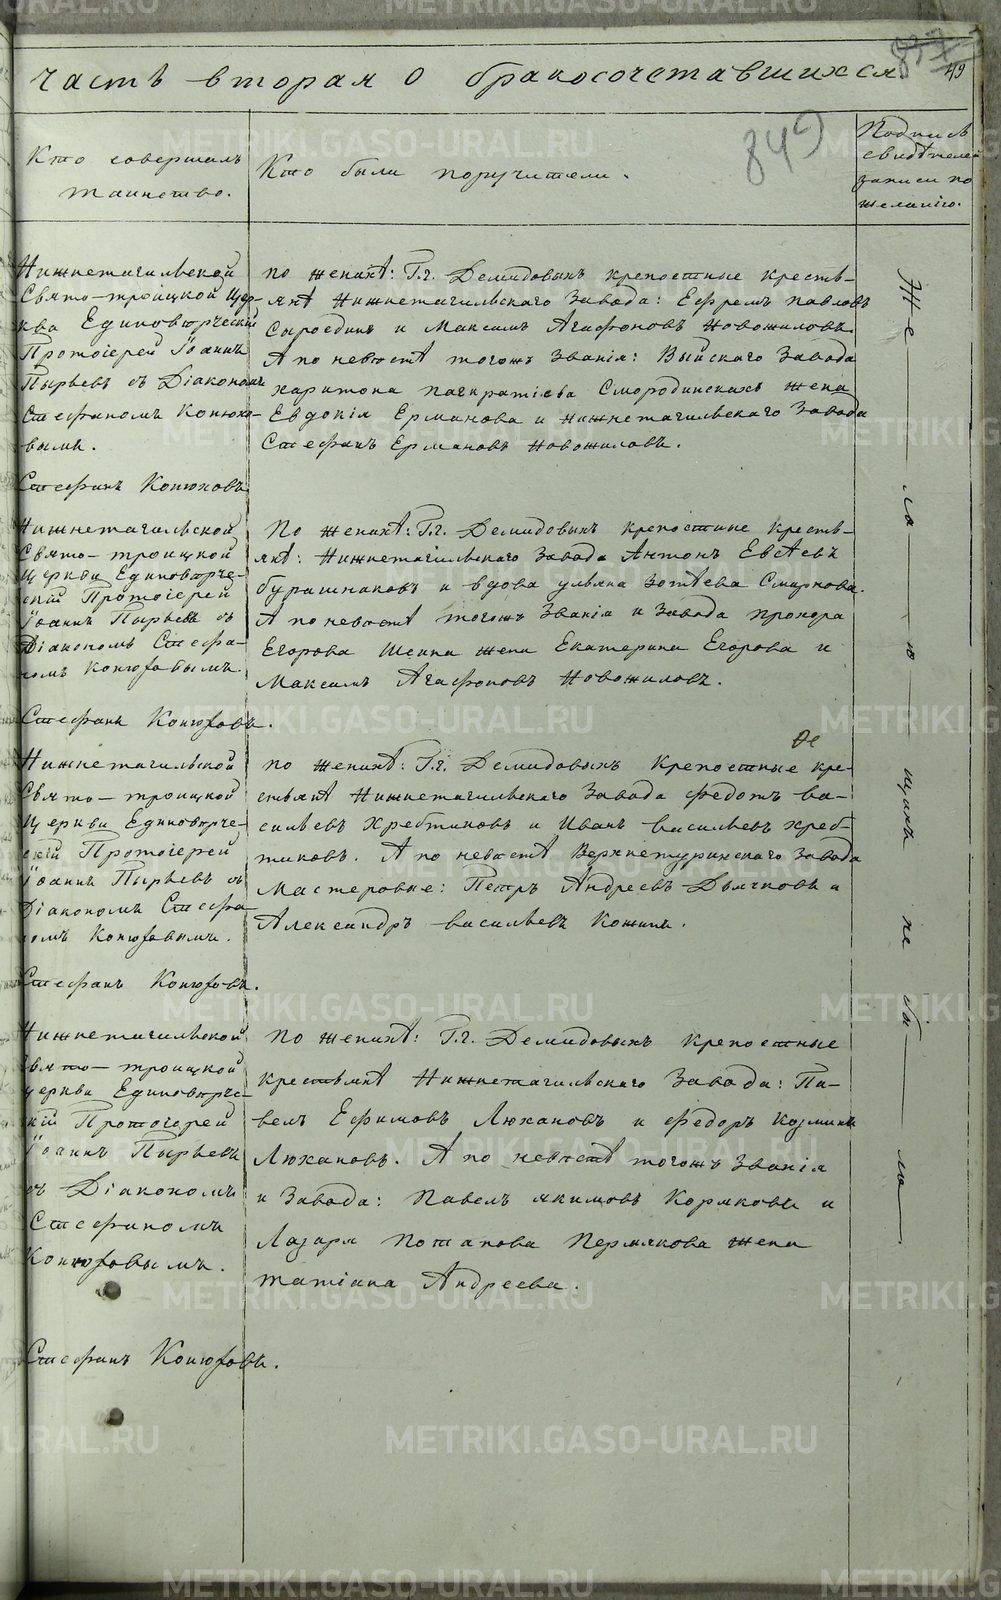 часть вторая о бракосочетавшихся
49
849
Кто совершалъ
таинство.
Кто были поручители.
Подпись
свидѣтелей
записи по
желанію.
Нижнетагильской
Свято-троицкой Цер-
кви Единовѣрческій
Протоіерей Іоаннъ
Пырьевъ съ Діакономъ
Стефаномъ Конюхо-
вымъ.
Стефанъ Конюховъ
по женихѣ: Г.г. Демидовыхъ крепостные кресть-
янѣ Нижнетагильскаго Завода: Ефремъ павловъ
Сыроединъ и Максимъ Агафоновъ Новожиловъ.
А по невѣстѣ тогожъ Званія: Выйскаго Завода
харитона панкратіева Смородинскахъ жена
Евдокія Ерманова и нижнетагильскаго Завода
Стефанъ Ермановъ Новожиловъ.
Нижнетагильской
Свято-троицкой
Церкви Единовѣрче-
скій Протоіерей
Іоаннъ Пырьевъ съ
Діакономъ Стефа-
номъ Конюховымъ.
Стефанъ Конюховъ.
По женихѣ: Г.г. Демидовыхъ крепостные кресть-
янѣ: Нижнетагильскаго Завода Антонъ Евсѣевъ
бурашниковъ и вдова ульяна Зотѣева Смирнова.
А по невѣстѣ тогожъ Званія и Завода прохора
Егорова Шеина жена Екатерина Егорова и
Максимъ Агафоновъ Новожиловъ.
Нижнетагильской
Свято-троицкой
Церкви Единовѣрче-
скій Протоіерей
Іоаннъ Пырьевъ съ
Діакономъ Стефа-
номъ Конюховымъ.
Стефанъ Конюховъ.
по женихѣ: Г.г. Демидовыхъ Крепостные кре-
стьянѣ Нижнетагильскаго Завода федотъ ва-
сильевъ Хребтиковъ и Иванъ васильевъ хреб-
тиковъ. А по невѣстѣ Верхнетуринскаго Завода
Мастеровые: Петръ Андреевъ Дьячковъ и
Александръ васильевъ Кожинъ.
Нижнетагильской
Свято-троицкой
Церкви Единовѣрче-
скій Протоіерей
Іоаннъ Пырьевъ
съ Діакономъ
Стефаномъ
Конюховымъ.
Стефанъ Конюховъ.
по женихѣ: Г.г. Демидовыхъ крепостные
крестьянѣ Нижнетагильскаго Завода: Па-
велъ Ефимовъ Люхановъ и федоръ Козминъ
Люхановъ. А по невѣстѣ тогожъ Званія
и Завода: Павелъ якимовъ Коряковъ и
Лазаря Потапова Пермякова жена
татіана Андреева.
Желающихъ не было
METRIKI.GASO-URAL.RU